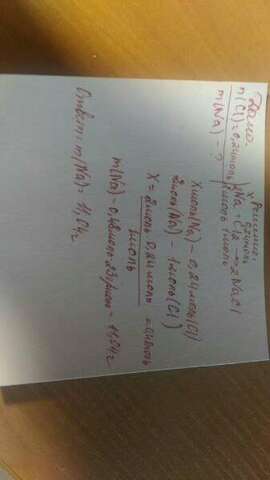 Дано:
n(Cl)=0,24моль
m(Na) - ?
Решение:
x 0,24моль
2Na + Cl2 → 2NaCl
2моль 1моль
Xмоль(Na) - 0,24моль(Cl)
2моль(Na) - 1моль(Cl)
X = 2моль 0,24моль = 0,48моль
1моль
m(Na) = 0,48моль 23г/моль = 11,04г
Ответ: m(Na) = 11,04г